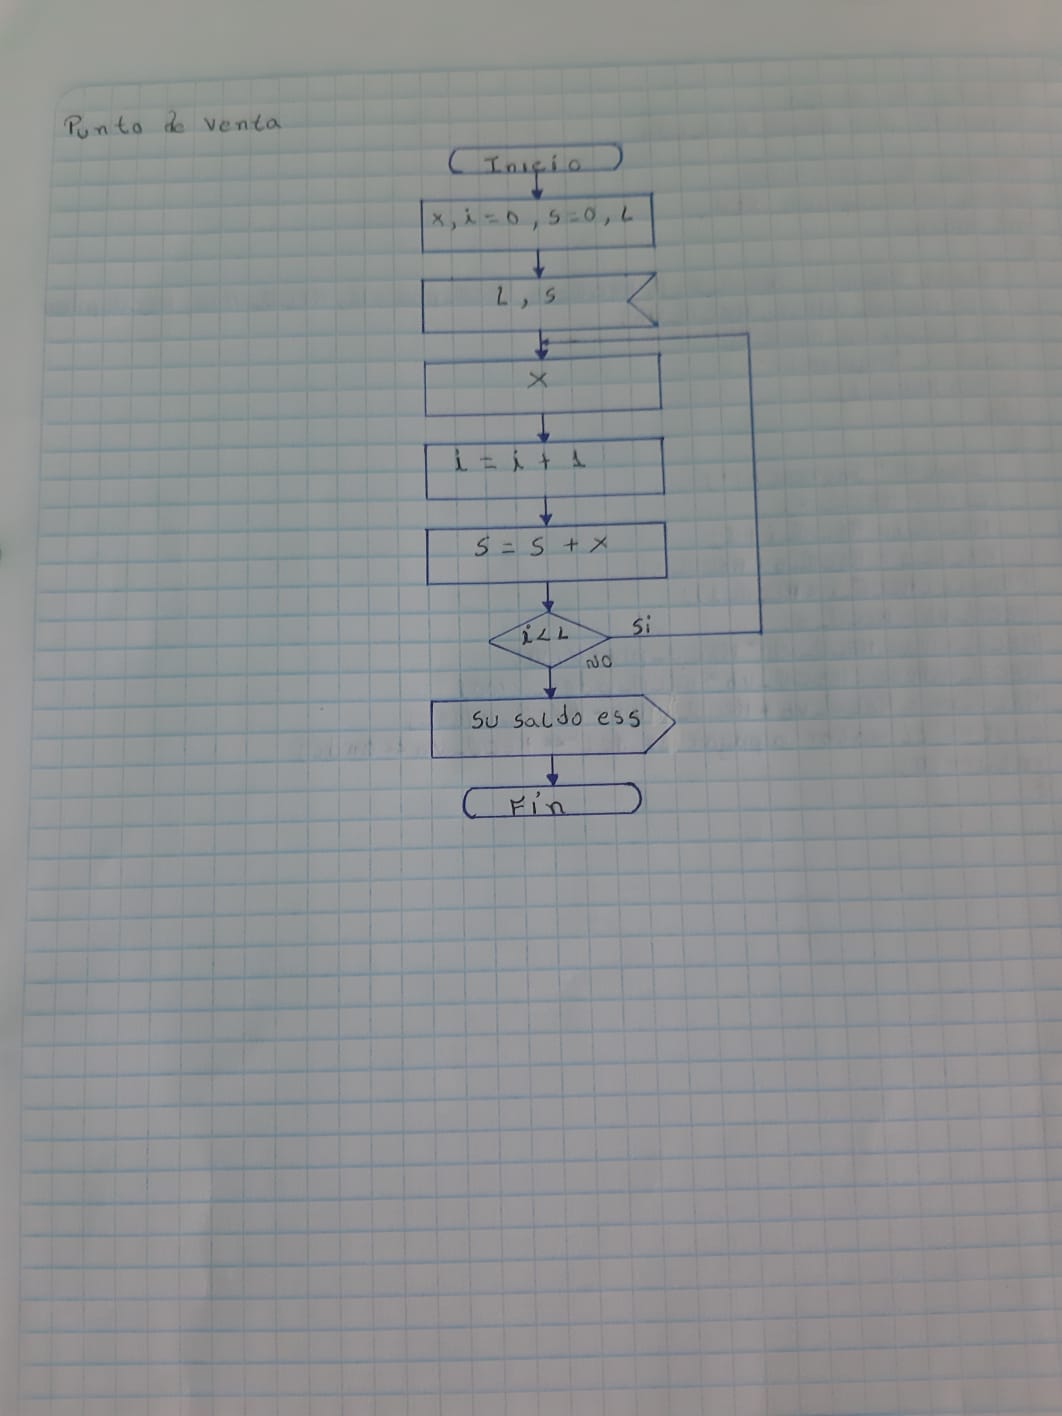 Punto de venta
Inicio
x, i=0, s=0, L
L, s
X
i = i + 1
S = S + x
i<L
Si
NO
su saldo ess
Fin